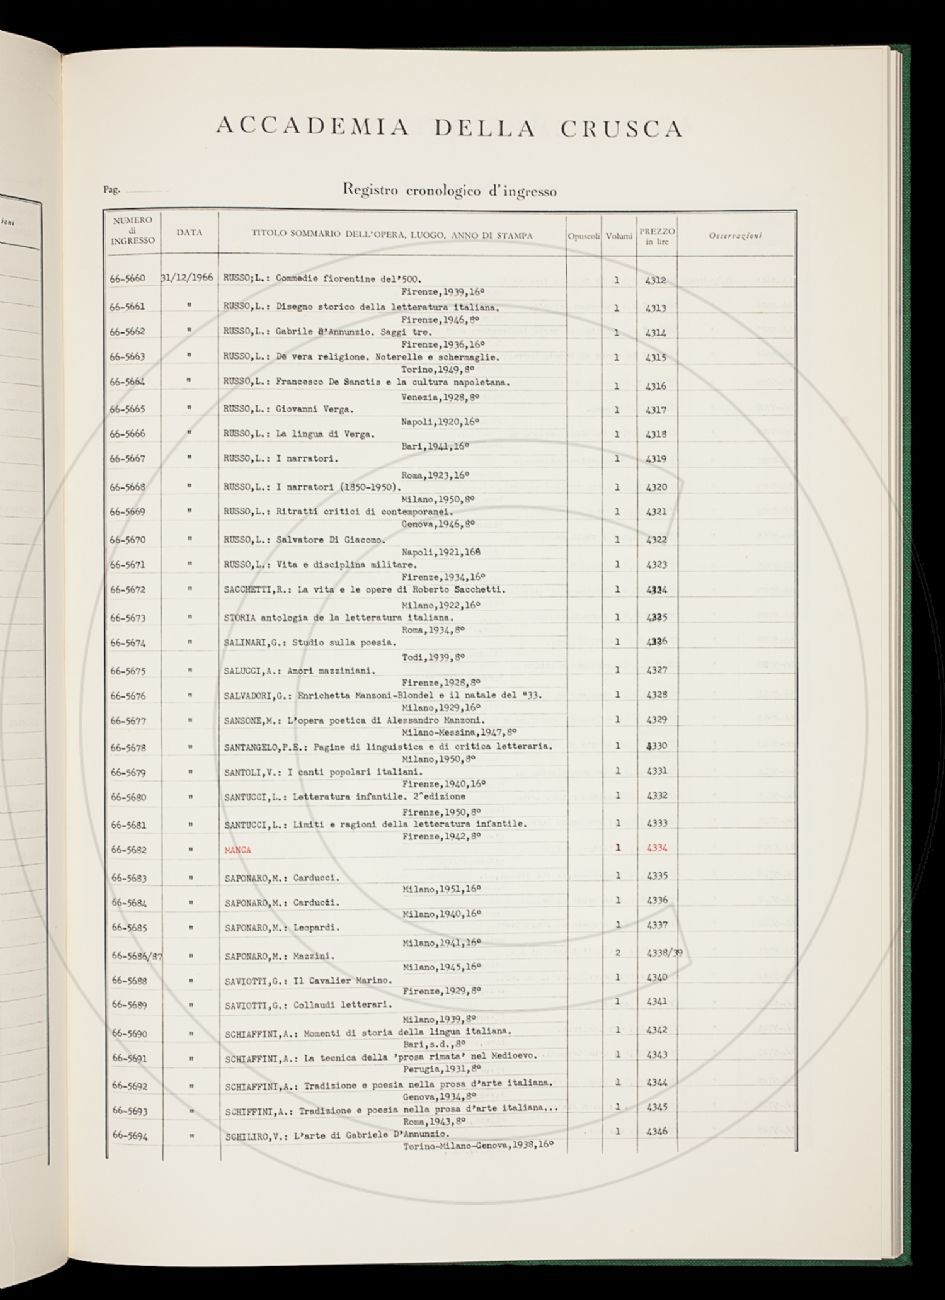 ACCADEMIA DELLA CRUSCA
Pag.
Registro cronologico d'ingresso
NUMERO di INGRESSO DATA TITOLO SOMMARIO DELL'OPERA, LUOGO, ANNO DI STAMPA Opuscoli Volumi PREZZO in lire Osservazioni
66-5660 31/12/1966 RUSSO;L.: Commedie fiorentine del'500. 1 4312
Firenze,1939,16º
66-5661 " RUSSO,L.: Disegno storico della letteratura italiana. 1 4313
Firenze,1946,8º
66-5662 " RUSSO,L.: Gabrile D'Annunzio. Saggi tre. 1 4314
Firenze,1936,16º
66-5663 " RUSSO,L.: De vera religione. Noterelle e schermaglie. 1 4315
Torino,1949,8º
66-5664 " RUSSO,L.: Francesco De Sanctis e la cultura napoletana. 1 4316
Venezia,1928,8º
66-5665 " RUSSO,L.: Giovanni Verga. 1 4317
Napoli,1920,16º
66-5666 " RUSSO,L.: La lingua di Verga. 1 4318
Bari,1941,16º
66-5667 " RUSSO,L.: I narratori. 1 4319
Roma,1923,16º
66-5668 " RUSSO,L.: I narratori (1850-1950). 1 4320
Milano,1950,8º
66-5669 " RUSSO,L.: Ritratti critici di contemporanei. 1 4321
Genova,1946,8º
66-5670 " RUSSO,L.: Salvatore Di Giacomo. 1 4322
Napoli,1921,168
66-5671 " RUSSO,L.: Vita e disciplina militare. 1 4323
Firenze,1934,16º
66-5672 " SACCHETTI,R.: La vita e le opere di Roberto Sacchetti. 1 4324
Milano,1922,16º
66-5673 " STORIA antologia de la letteratura italiana. 1 4325
Roma,1934,8º
66-5674 " SALINARI,G.: Studio sulla poesia. 1 4326
Todi,1939,8º
66-5675 " SALUCCI,A.: Amori mazziniani. 1 4327
Firenze,1928,8º
66-5676 " SALVADORI,G.: Enrichetta Manzoni-Blondel e il natale del "33. 1 4328
Milano,1929,16º
66-5677 " SANSONE,M.: L'opera poetica di Alessandro Manzoni. 1 4329
Milano-Messina,1947,8º
66-5678 " SANTANGELO,P.E.: Pagine di linguistica e di critica letteraria. 1 4330
Milano,1950,8º
66-5679 " SANTOLI,V.: I canti popolari italiani. 1 4331
Firenze,1940,16º
66-5680 " SANTUCCI,L.: Letteratura infantile. 2^edizione 1 4332
Firenze,1950,8º
66-5681 " SANTUCCI,L.: Limiti e ragioni della letteratura infantile. 1 4333
Firenze,1942,8º
66-5682 " MANCA 1 4334
66-5683 " SAPONARO,M.: Carducci. 1 4335
Milano,1951,16º
66-5684 " SAPONARO,M.: Carducci. 1 4336
Milano,1940,16º
66-5685 " SAPONARO,M.: Leopardi. 1 4337
Milano,1941,16º
66-5686/87 " SAPONARO,M.: Mazzini. 2 4338/39
Milano,1945,16º
66-5688 " SAVIOTTI,G.: Il Cavalier Marino. 1 4340
Firenze,1929,8º
66-5689 " SAVIOTTI,G.: Collaudi letterari. 1 4341
Milano,1939,8º
66-5690 " SCHIAFFINI,A.: Momenti di storia della lingua italiana. 1 4342
Bari,s.d.,8º
66-5691 " SCHIAFFINI,A.: La tecnica della 'prosa rimata' nel Medioevo. 1 4343
Perugia,1931,8º
66-5692 " SCHIAFFINI,A.: Tradizione e poesia nella prosa d'arte italiana. 1 4344
Genova,1934,8º
66-5693 " SCHIFFINI,A.: Tradizione e poesia nella prosa d'arte italiana... 1 4345
Roma,1943,8º
66-5694 " SCHILIRO,V.: L'arte di Gabriele D'Annunzio. 1 4346
Torino-Milano-Genova,1938,16º